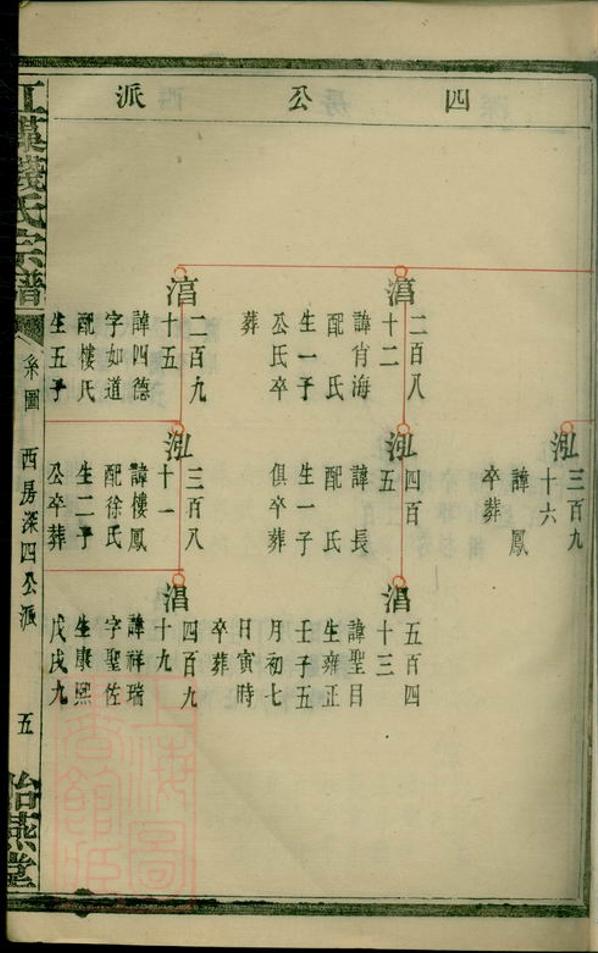 四公派
湻
二百八
十二
諱肖海
配　氏
生一子
公氏卒
葬
湻
二百九
十五
諱四德
字如道
配樓氏
生五子
泓
三百九
十六
諱　鳳
卒葬
泓
四百
五
諱　長
配　氏
生一子
俱卒葬
泓
三百八
十一
諱樓鳳
配徐氏
生二子
公卒葬
淐
五百四
十三
諱聖目
生雍正
壬子五
月初七
日寅時
卒葬
淐
四百九
十九
諱祥瑞
字聖佐
生康熙
戊戌九
錢氏宗譜
系圖
西房深四公派
五
怡燕堂